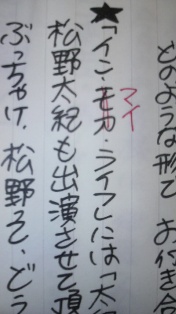 どのような形で お付き合
★「イン・マイ・ライフ」には「太
松野太紀も出演させて頂
ぶっちゃけ、松野さん、どう